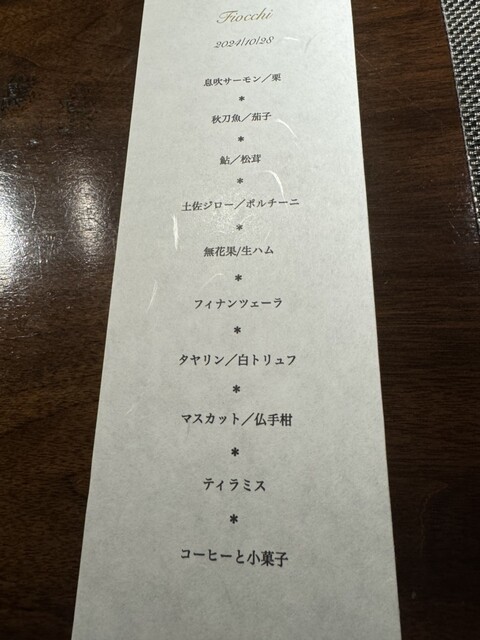 Fiocchi
2024/10/28
息吹サーモン／栗
*
秋刀魚／茄子
*
鮎／松茸
*
土佐ジロー／ポルチーニ
*
無花果/生ハム
*
フィナンツェーラ
*
タヤリン／白トリュフ
*
マスカット／仏手柑
*
ティラミス
*
コーヒーと小菓子